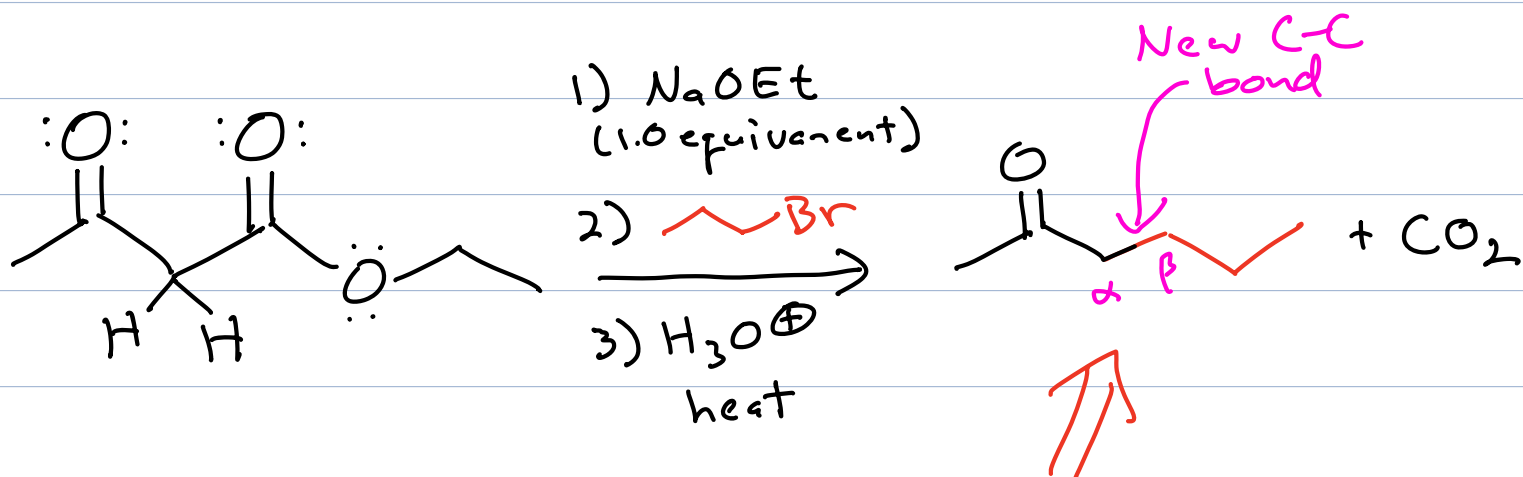 :O: :O:
O
H H
1) NaOEt
(1.0 equivanent)
2) Br
3) H3O⊕
heat
New C-C
bond
O
α β
+ CO2